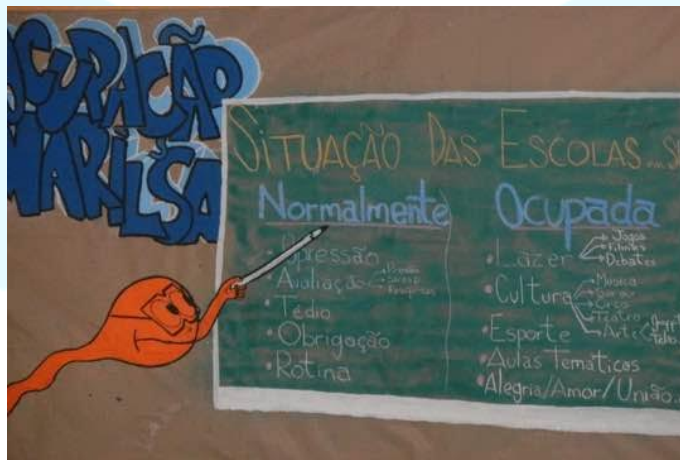 OCUPAÇÃO
MARILSA
SITUAÇÃO DAS ESCOLAS...
Normalmente
• Opressão
• Avaliação
• Tédio
• Obrigação
• Rotina
Ocupada
• Lazer → Jogos
→ Filmes
→ Debates
• Cultura → Música
→ Sarau
→ Teatro
→ Arte
• Esporte
• Aulas Temáticas
• Alegria/Amor/União...